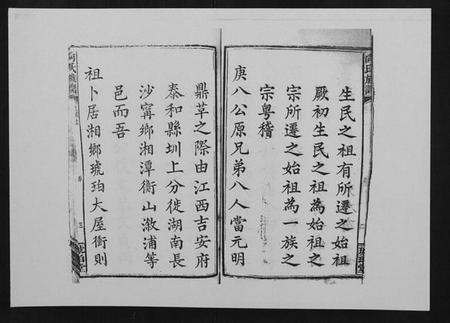 生民之祖有所遷之始祖
厥初生民之祖為始祖之
宗所遷之始祖為一族之
宗粵稽
庚八公原兄弟八人當元明
鼎革之際由江西吉安府
泰和縣圳上分徙湖南長
沙寧鄉湘潭衡山漵浦等
邑而吾
祖卜居湘鄉琥珀大屋衝則